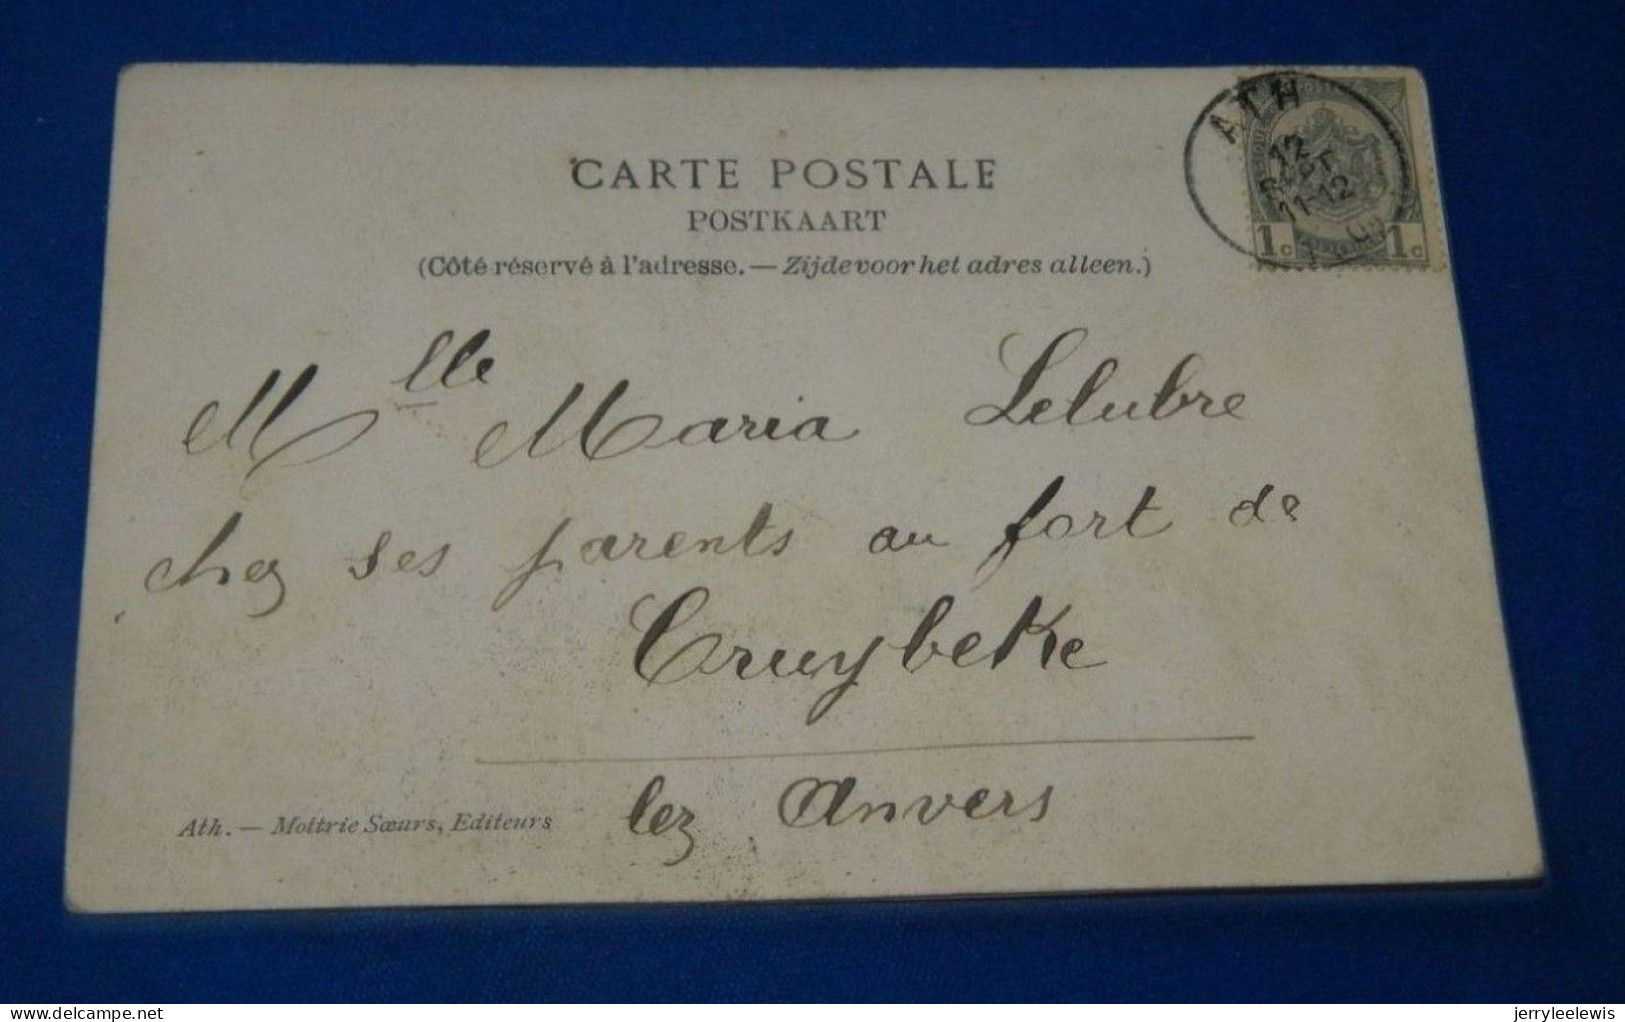 CARTE POSTALE
POSTKAART
(Côté réservé à l'adresse. — Zijde voor het adres alleen.)
ATH
12
SEPT
11-12
1c 1c
Mlle Maria Lelubre
chez ses parents au fort de
Cruybeke
lez Anvers
Ath. — Mottrie Sœurs, Editeurs
Delcampe.net
jerryleelewis